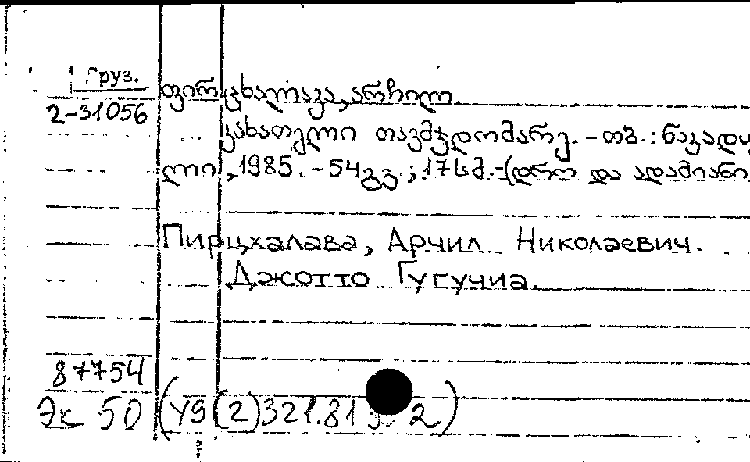 Груз.
2-31056
ფირცხალავა, არჩილ
კახათელი თავმჯდომარე. - თბ. : ნაკადუ
ლი, 1985. - 54გვ. ; 17სმ. - (დრო და ადამიანი
Пирцхалава, Арчил Николаевич.
Джотто Гугучиа.
87754
Эк 50 (У9(2)321.81 2)